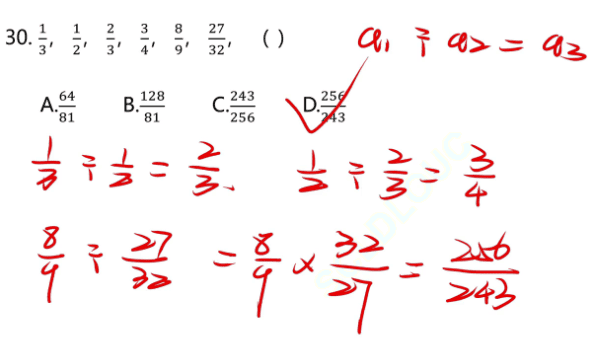 30. 1/3, 1/2, 2/3, 3/4, 8/9, 27/32, ( ) a₁ ÷ a₂ = a₃
A. 64/81 B. 128/81 C. 243/256 D. 256/243
1/3 ÷ 1/2 = 2/3. 1/2 ÷ 2/3 = 3/4
8/9 ÷ 27/32 = 8/9 × 32/27 = 256/243